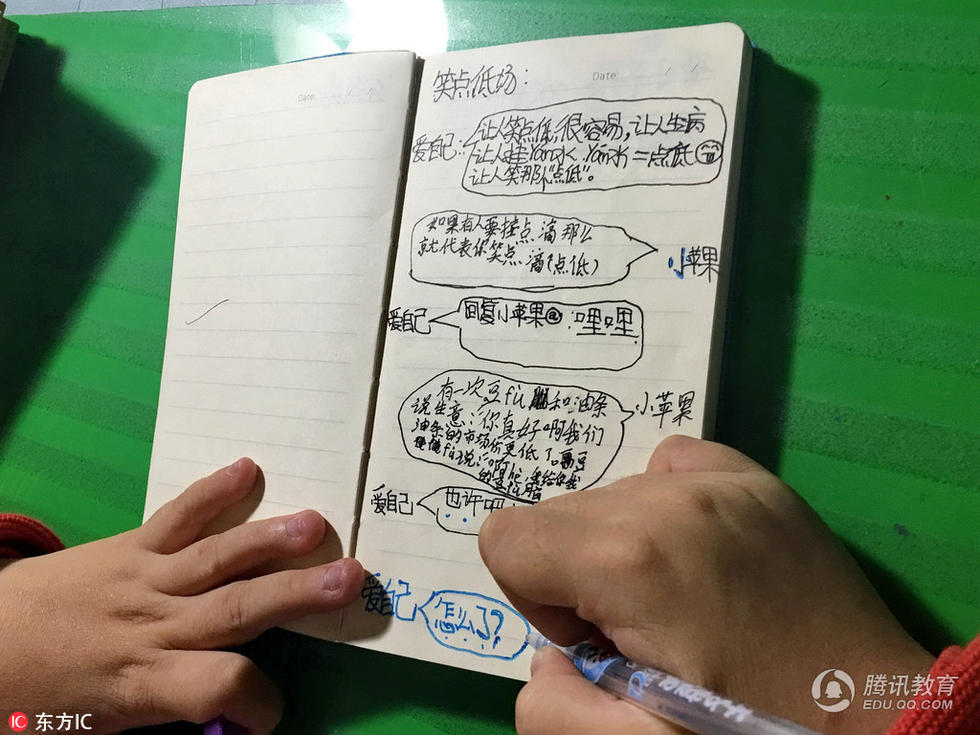 Date
Date
笑点低场：
爱自己：
让人笑点低，很容易，让人生病
让人挂yan水，yan水=点底
让人笑那"点低"。
如果有人要挂点滴那么
就代表你笑点滴（点低）
小苹果
爱自己
回复小苹果@：哩哩
有一次豆fu和油条
说生意：你真好啊我们
油条的市场价更低了
小苹果
爱自己
也许吧
爱自己
怎么了？
腾讯教育
EDU.QQ.COM
IC 东方IC